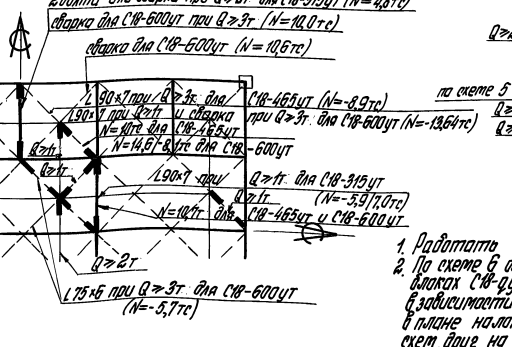 сварка для С18-600ут при Q≥3т (N=10,0тс)
сварка для С18-600ут (N=10,6тс)
L90×7 при Q≥3т для С18-465ут (N=-8,9тс)
L90×7 при Q≥1т и сварка при Q≥3т для С18-600ут (N=-13,64тс)
N=10тс для С18-465ут
N=14,6/-8,1тс для С18-600ут
по схеме 5
Q≥1т
Q≥1т
L90×7 при Q≥1т для С18-315ут
Q≥1т (N=-5,9/7,0тс)
N=10,7т для С18-465ут и С18-600ут
Q≥2т
L75×6 при Q≥3т для С18-600ут
(N=-5,7тс)
1. Работать
2. По схеме 6
блоках С18-
в зависимости
в плане
схем друг на